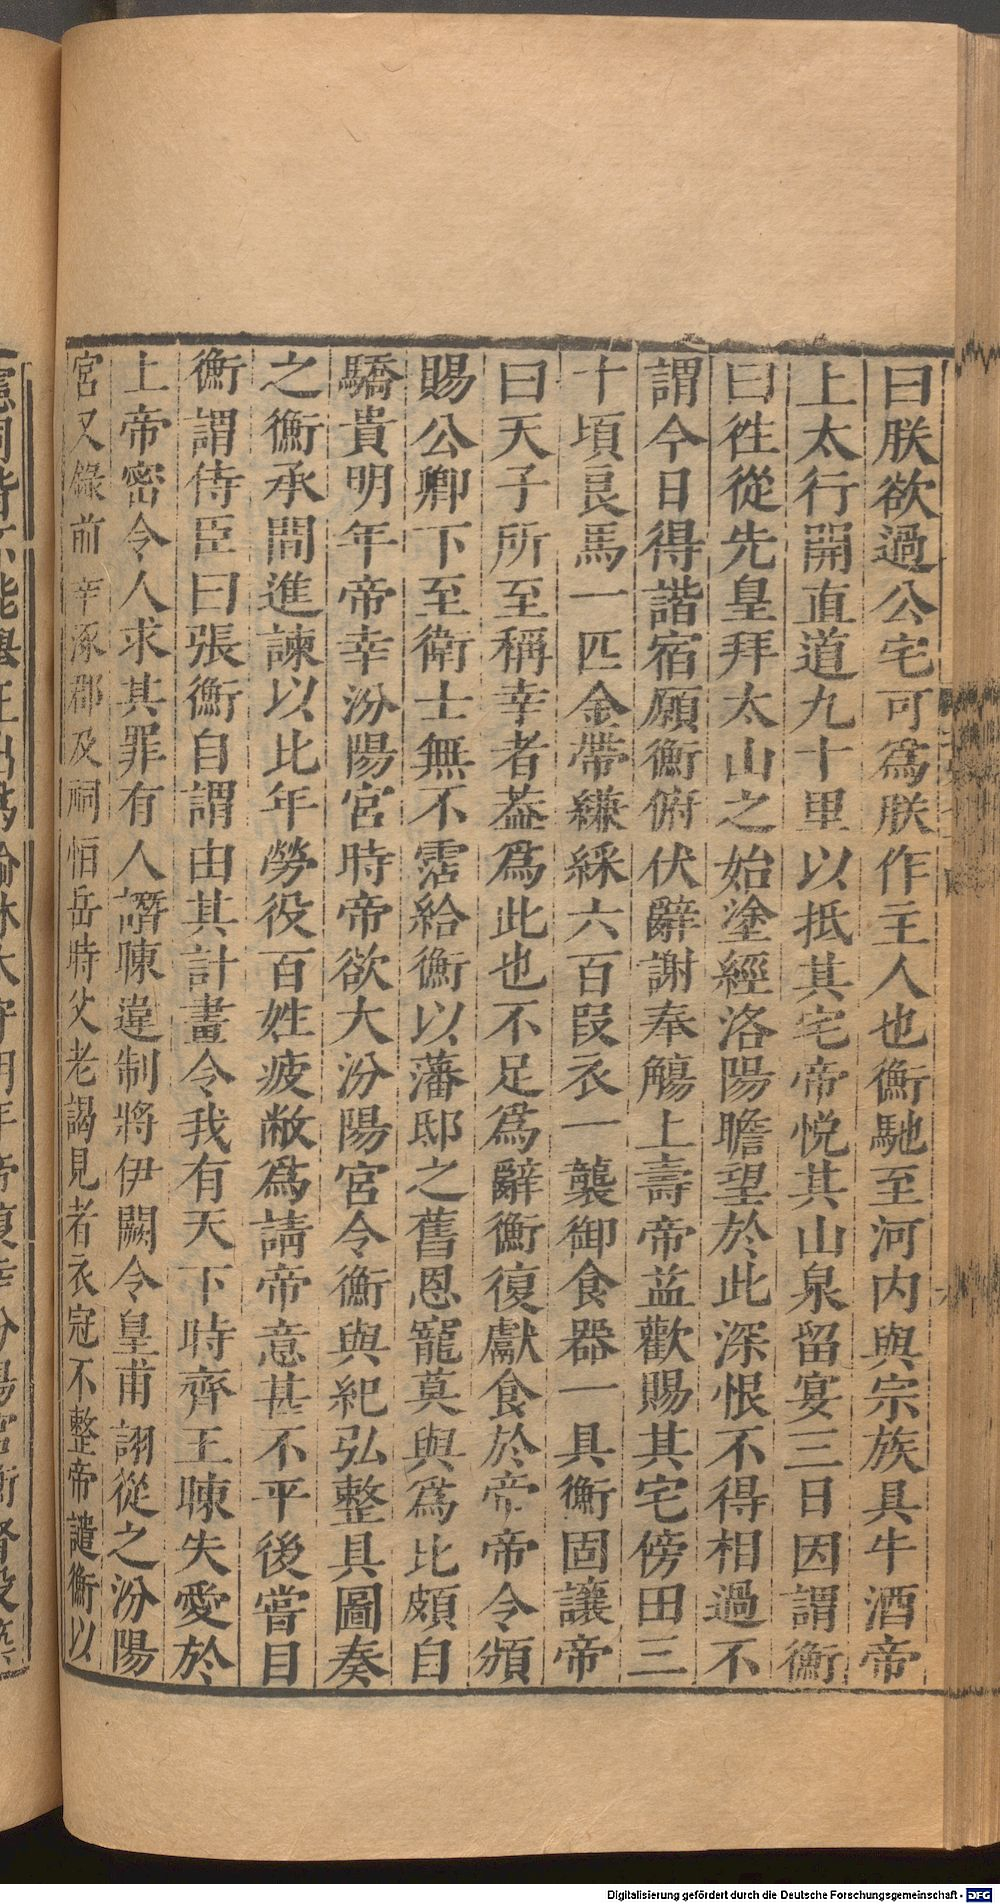 曰朕欲過公宅可爲朕作主人也衡馳至河内與宗族具牛酒帝
上太行開直道九十里以抵其宅帝悅其山泉留宴三日因謂衡
曰徃從先皇拜太山之始塗經洛陽瞻望於此深恨不得相過不
謂今日得諧宿願衡俯伏辭謝奉觴上壽帝益歡賜其宅傍田三
十頃良馬一匹金帶縑綵六百段衣一襲御食器一具衡固讓帝
曰天子所至稱幸者葢爲此也不足爲辭衡復獻食於帝帝令頒
賜公卿下至衛士無不霑給衡以藩邸之舊恩寵莫與爲比頗自
驕貴明年帝幸汾陽宮時帝欲大汾陽宮令衡與紀弘整具圖奏
之衡承間進諫以比年勞役百姓疲敝爲請帝意甚不平後嘗目
衡謂侍臣曰張衡自謂由其計畫令我有天下時齊王暕失愛於
上帝密令人求其罪有人譖暕違制將伊闕令皇甫詡從之汾陽
宮又錄前幸涿郡及祠恒岳時父老謁見者衣冠不整帝譴衡以
Digitalisierung gefördert durch die Deutsche Forschungsgemeinschaft - DFG